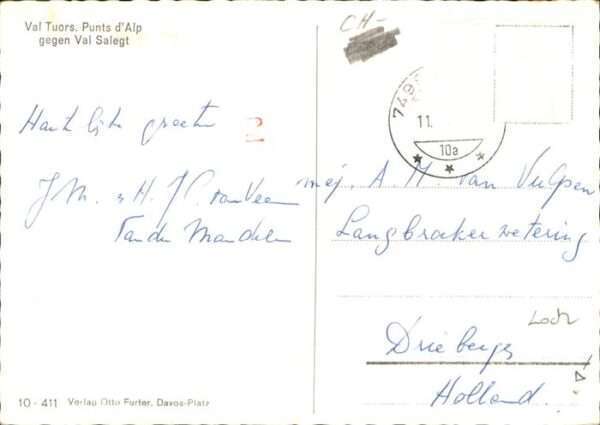 Val Tuors. Punts d'Alp
gegen Val Salegt
CH-
7495
11.
10a
Hartelijke groeten
2
J. M. H. J. C. van Veen
Van der
mej. A. M. van Vulpen
Langbroeker wetering
Driebergen
Holland.
10 - 411 Verlag Otto Furter, Davos-Platz